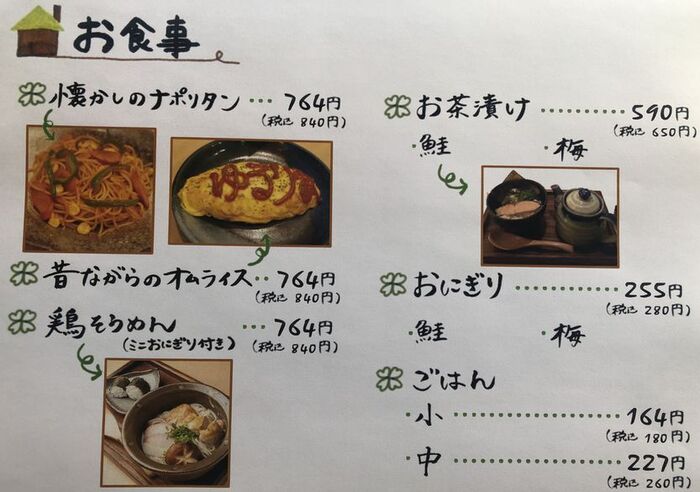 お食事
懐かしのナポリタン … 764円
(税込 840円)
昔ながらのオムライス … 764円
(税込 840円)
鶏そうめん … 764円
(ミニおにぎり付き) (税込 840円)
お茶漬け ………… 590円
(税込 650円)
・鮭 ・梅
おにぎり ………… 255円
(税込 280円)
・鮭 ・梅
ごはん
・小 ………… 164円
(税込 180円)
・中 ………… 227円
(税込 260円)